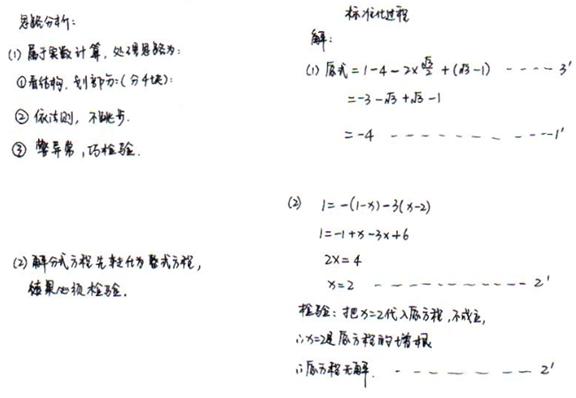 思路分析:
(1) 属于实数计算,处理思路为:
①看结构,划部分(分4块);
② 依法则,不跳步.
③ 警异常,巧检验.
(2) 解分式方程先转化为整式方程,
结果必须检验.
标准化过程
解:
(1) 原式=1-4-2×√3/2+(√3-1) ---- 3'
=-3-√3+√3-1
=-4 ------------1'
(2) 1=-(1-x)-3(x-2)
1=-1+x-3x+6
2x=4
x=2 ------------ 2'
检验: 把x=2代入原方程,不成立,
∴x=2是原方程的增根
∴原方程无解. -------- 2'